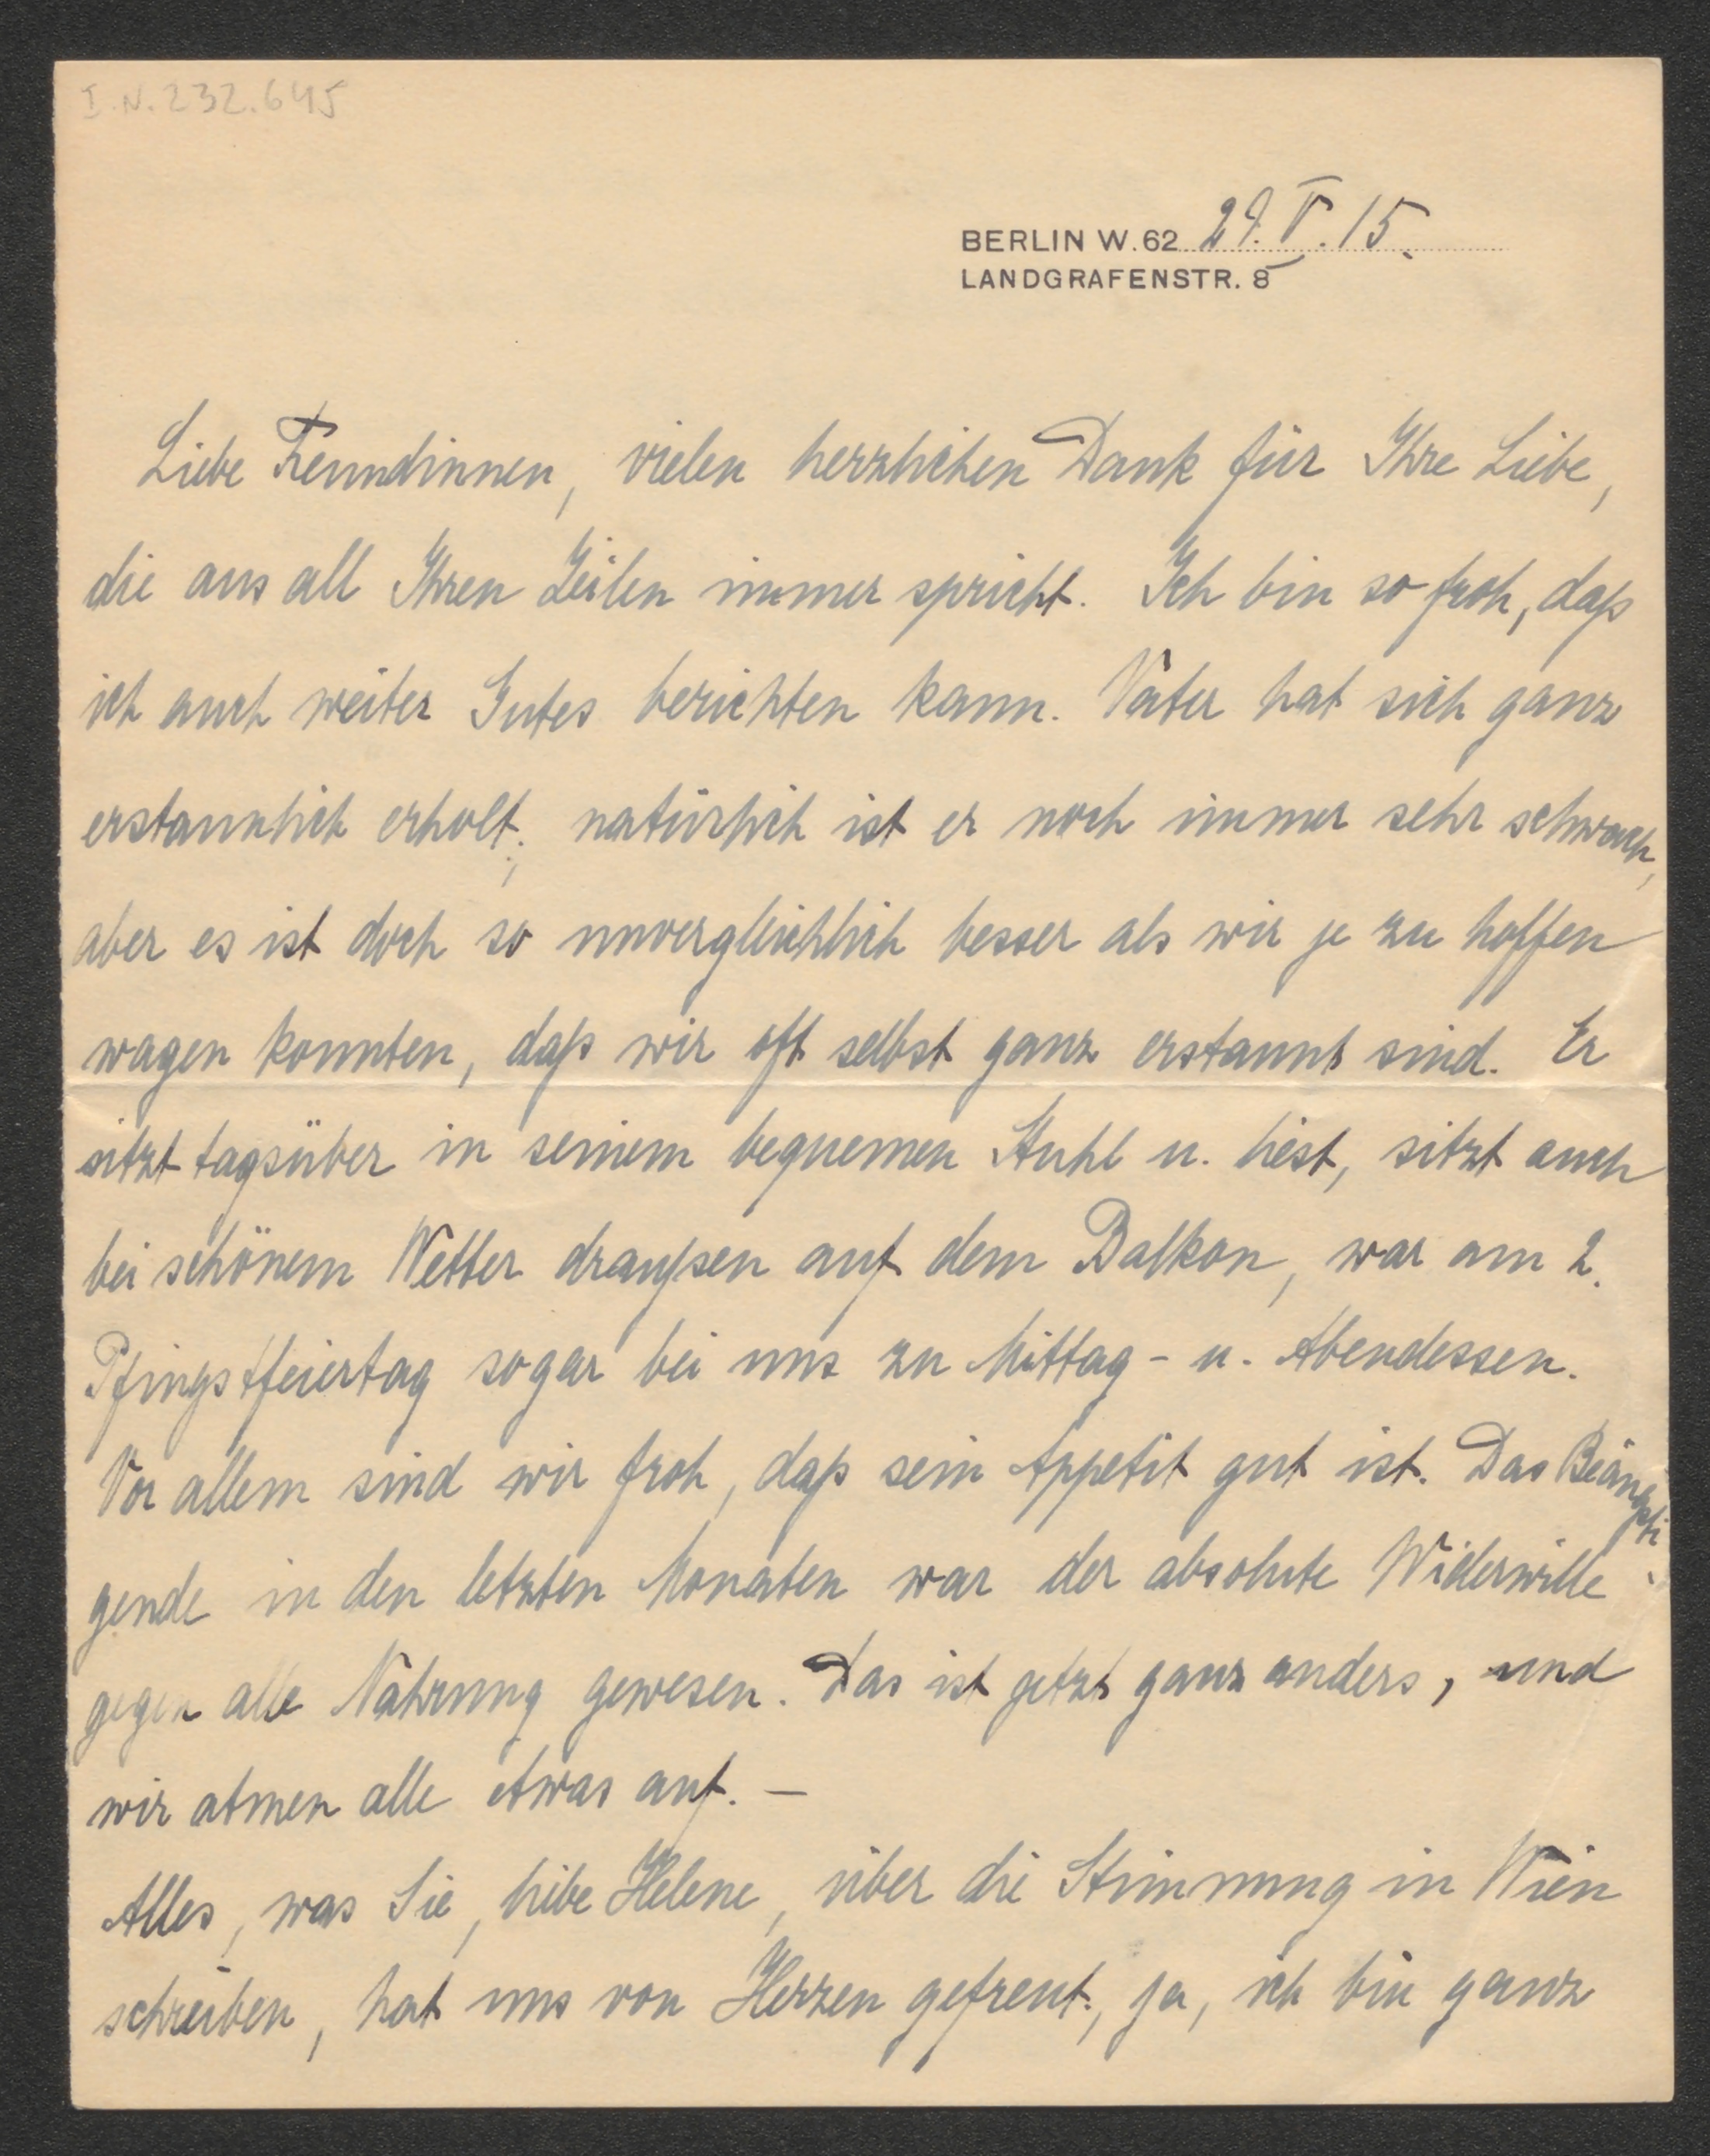 I.N. 232.645
BERLIN W. 62 29. V. 15.
LANDGRAFENSTR. 8
Liebe Freundinnen, vielen herzlichen Dank für Ihre Liebe,
die aus all Ihren Zeilen immer spricht. Ich bin so froh, daß
ich auch weiter Gutes berichten kann. Vater hat sich ganz
erstaunlich erholt; natürlich ist er noch immer sehr schwach,
aber es ist doch so unvergleichlich besser als wir je zu hoffen
wagen konnten, daß wir oft selbst ganz erstaunt sind. Er
sitzt tagsüber in seinem bequemen Stuhl u. liest, sitzt auch
bei schönem Wetter draußen auf dem Balkon, war am 2.
Pfingstfeiertag sogar bei uns zu Mittag- u. Abendessen.
Vor allem sind wir froh, daß sein Appetit gut ist. Das Beängsti-
gende in den letzten Monaten war der absolute Widerwille
gegen alle Nahrung gewesen. Das ist jetzt ganz anders, und
wir atmen alle etwas auf. —
Alles, was Sie, liebe Helene, über die Stimmung in Wien
schreiben, hat uns von Herzen gefreut; ja, ich bin ganz